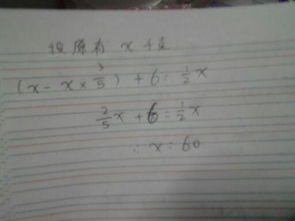 设原有 x 支
(x - x × 3/5) + 6 = 1/2 x
2/5 x + 6 = 1/2 x
∴ x = 60